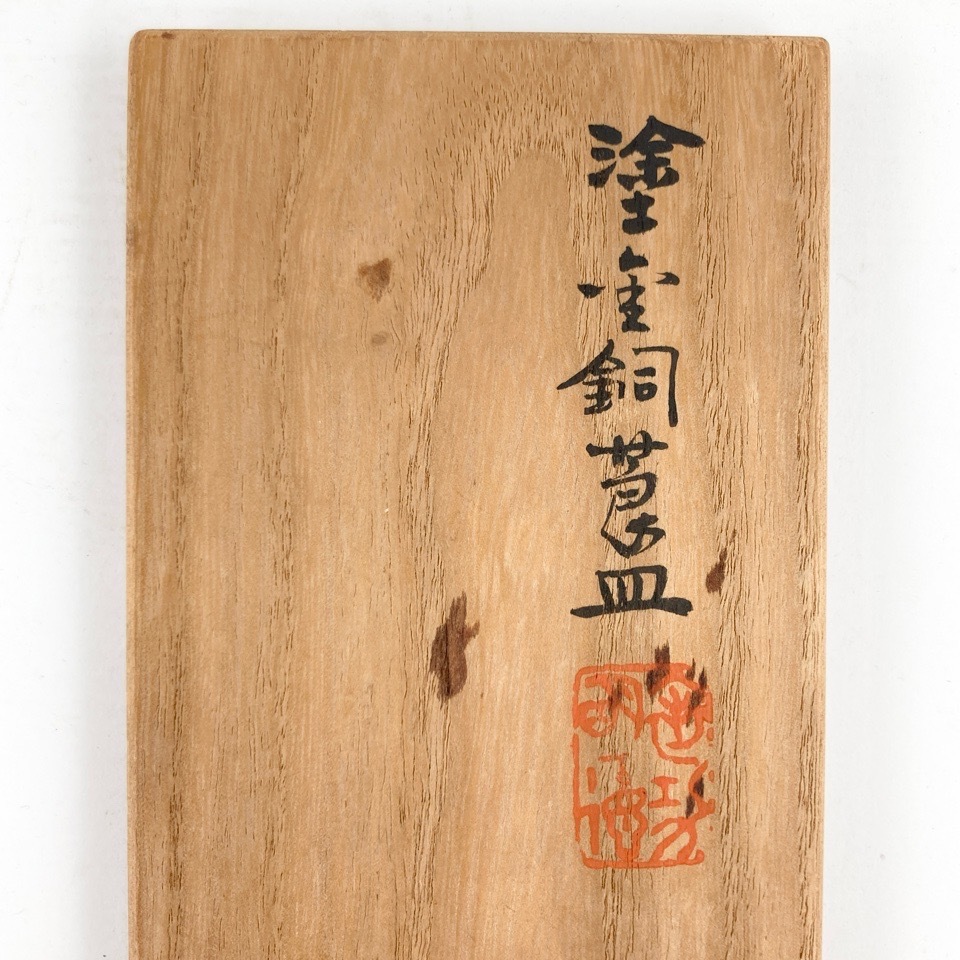 塗金銅莨皿